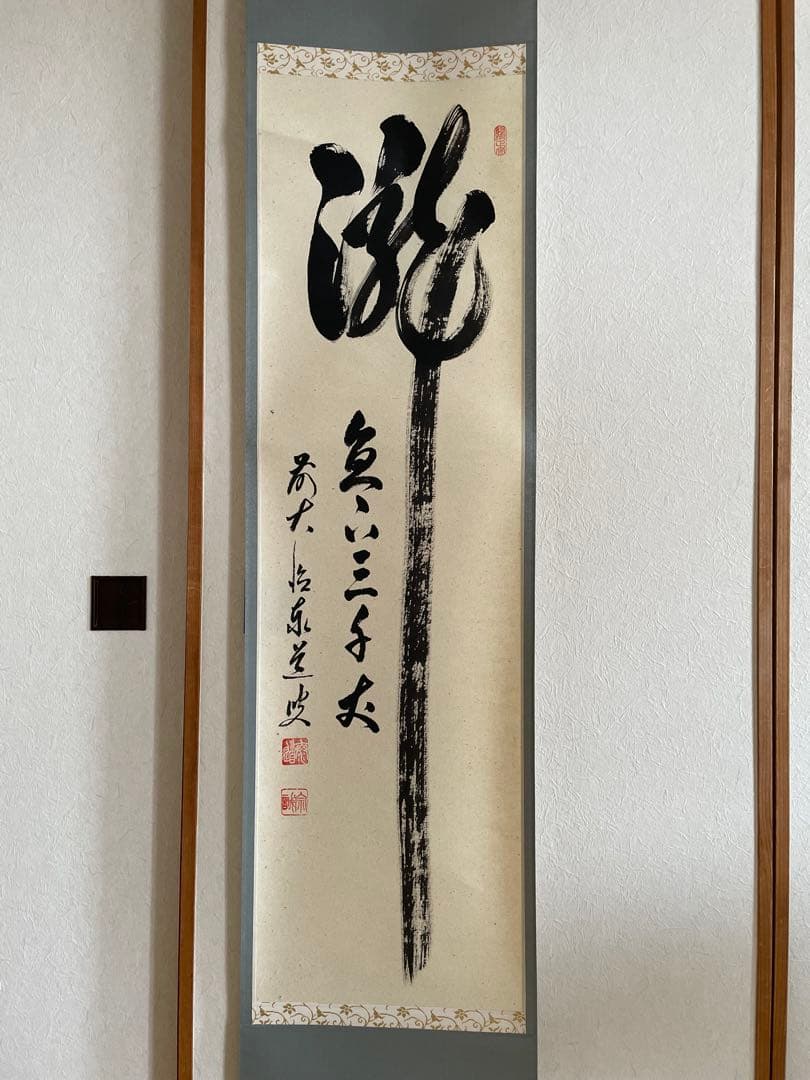 瀧
直下三千丈
前大徳泰道叟